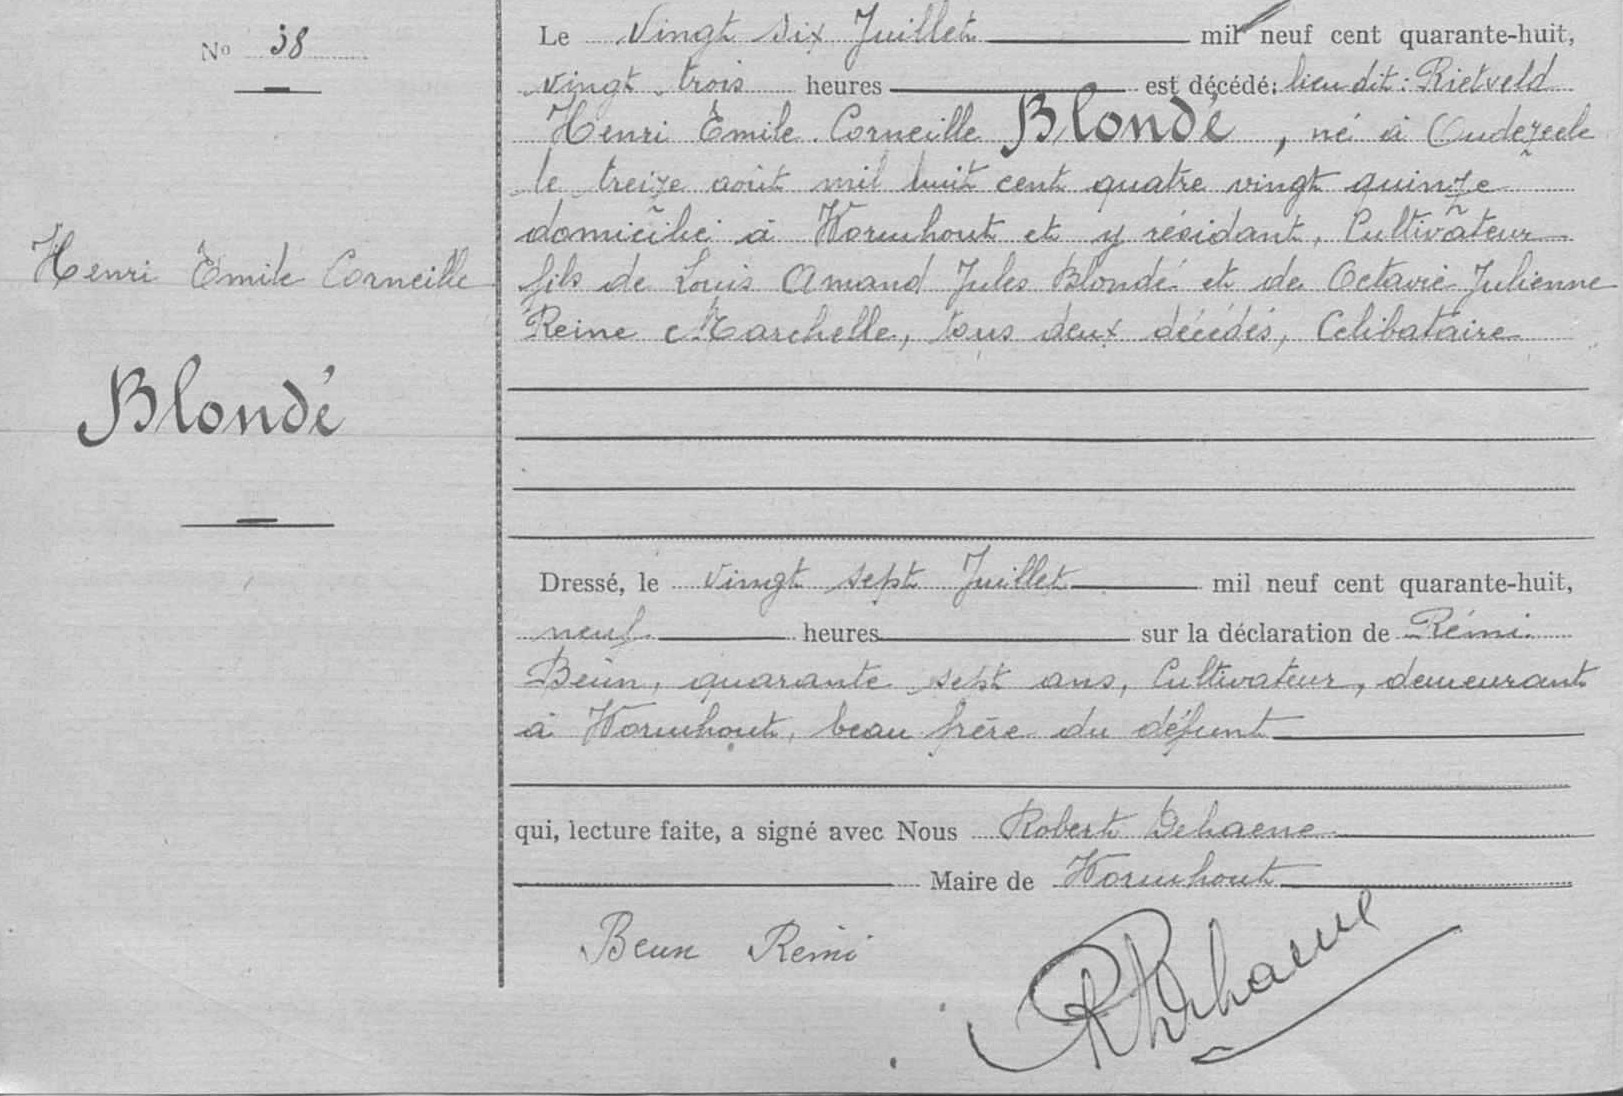 Nº 38
Henri Emile Corneille
Blondé
Le vingt six Juillet mil neuf cent quarante-huit,
vingt trois heures est décédé: lieu dit: Rietveld
Henri Emile Corneille Blondé, né à Oudezeele
le treize août mil huit cent quatre vingt quinze
domicilié à Wormhout et y résidant, Cultivateur
fils de Louis Amand Jules Blondé et de Octavie Julienne
Reine Marchelle, tous deux décédés, Célibataire
Dressé, le vingt sept Juillet mil neuf cent quarante-huit,
neuf heures sur la déclaration de Rémi
Beun, quarante sept ans, Cultivateur, demeurant
à Wormhout, beau frère du défunt
qui, lecture faite, a signé avec Nous Robert Dehaene
Maire de Wormhout
Beun Remi
RDehaene